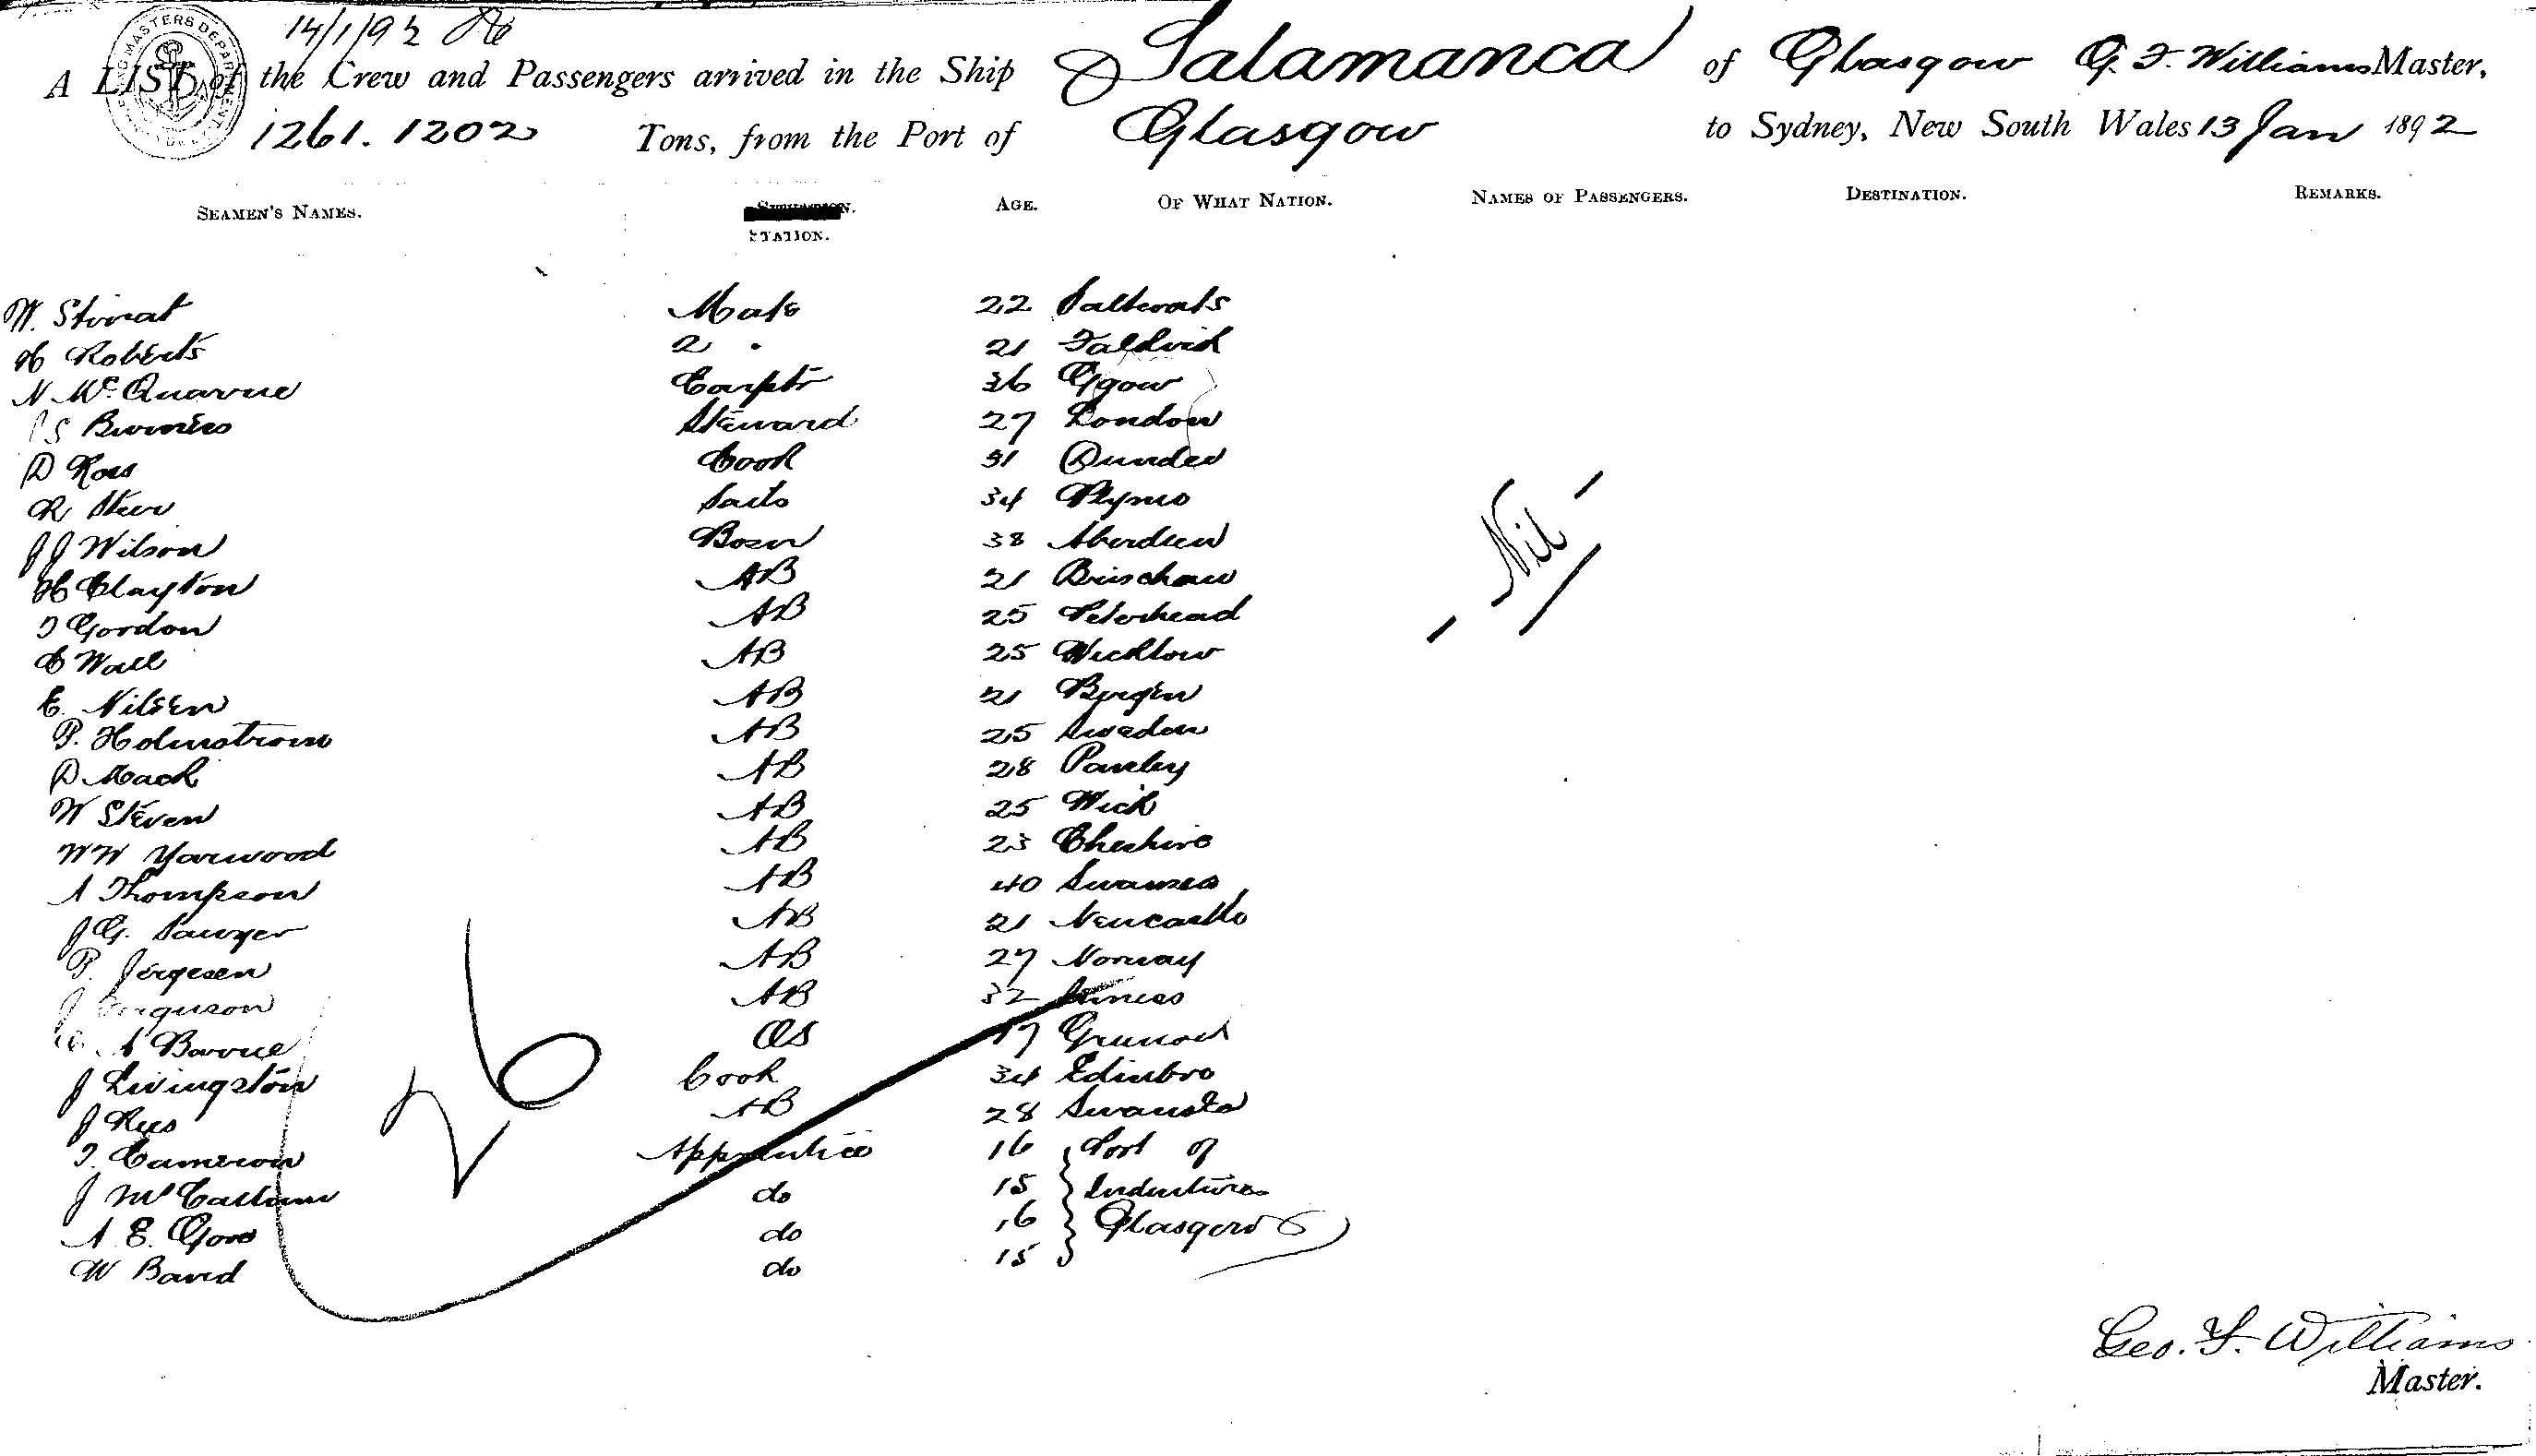 14/1/92
A LIST of the Crew and Passengers arrived in the Ship Salamanca of Glasgow G. F. Williams Master,
1261. 1202 Tons, from the Port of Glasgow to Sydney, New South Wales 13 Jan 1892
SEAMEN'S NAMES. STATION. AGE. OF WHAT NATION. NAMES OF PASSENGERS. DESTINATION. REMARKS.
W. Mate 22
H Roberts 2 . 21
N Mc Quarrie Carptr 36 Ggow
Steward 27 London
D Ross Cook 31 Dundee
R Sails 34 Plymo
J J Wilson Bosn 38 Aberdeen
H Clayton AB 21
Gordon AB 25 Peterhead
Wall AB 25 Wicklow
E. Nilsen AB 21 Bergen
P. Holmstrom AB 25 Sweden
D Mack AB 28 Paisley
W Steven AB 25 Wick
W W Yarwood AB 23 Cheshire
A Thompson AB 40 Swansea
J G. Sawyer AB 21 Newcastle
P. Jergesen AB 27 Norway
J Ferguson AB 32
A Barrie OS 17 Greenock
J Livingston Cook 34 Edinbro
J Rees AB 28 Swansea
Cameron Apprentice 16 Port of
J McCallum do 15 Indentures
A. E. Gow do 16 Glasgow
W Baird do 15
- Nil -
26
Geo. F. Williams
Master.